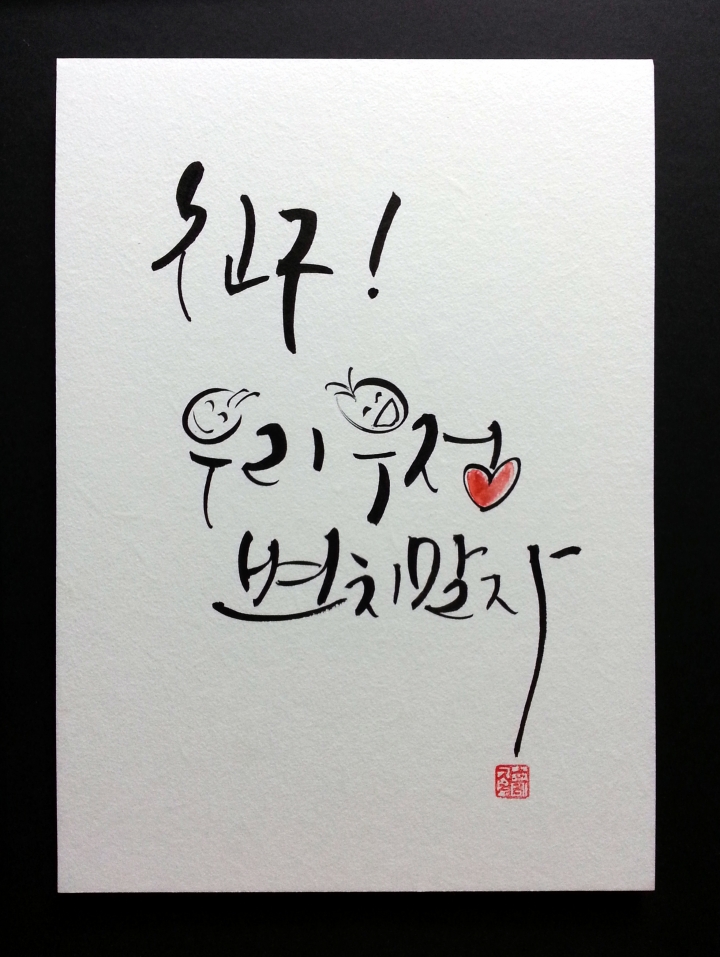 친구!
우리 우정
변치말자